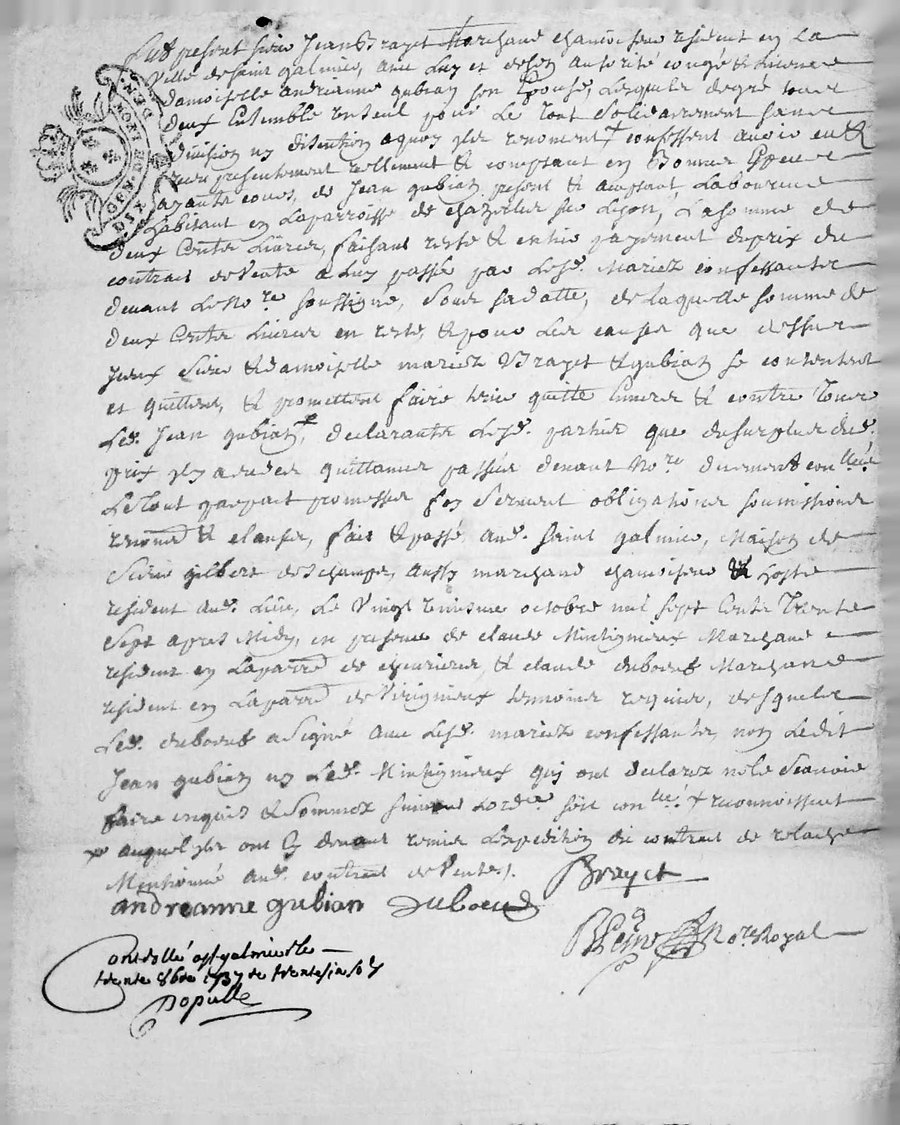 Fut present sieur Jean Brayet Marchand chamoiseur resident en la
ville de saint galmier, avec Luy et de son authorité congé & Licence
damoiselle andreanne gubian son Epouse, Lesquels de gré tous
deux Ensemble un seul pour Le tout solidairement sans
division ny discution a quoy ils renoncent confessent avoir eu &
receu presentement reellement & comptant en Bonnes Especes
ayants cours, de Jean gubian present & acceptant, Laboureur
habitant en Laparroisse de chazelles sur Lyon, La somme de
deux Cents Livres, faisant reste & entier payement du prix du
contract de vente a Luy passé par Lesd. Mariez confessants
devant Le No.re soussigné, sous sa datte, de laquelle somme de
deux Cents Livres en reste, & pour Les causes que dessus
yceux sieur & damoiselle mariez Brayet & gubian se contentent
et quittent, & promettent faire tenir quitte Envers & contre tous
Led. Jean gubian, declarants Lesd. parties que du surplus dud.
prix il y a eu des quittances passées devant No.re duement con.llées
Le tout par part promesses foy serment obligations soumissions
renon.ons & clauses, fait & passé aud. saint galmier, Maison de
sieur gilbert deschamps, aussy marchand chamoiseur & hoste
resident aud. Lieu, Le vingt troisieme octobre mil sept Cents Trente
sept apres Midy, en presence de claude Montigneux Marchand
resident en Laparr.e de chevrieres, & claude duboeuf Marchand
resident en Laparr.e de virigneux temoins requis, desquels
Led. duboeuf a signé avec Lesd. mariez confessants, non Ledit
Jean gubian ny Led. Montigneux qui ont declarez ne le scavoir
faire enquis & sommez suivant Lord.ce soit con.llé + reconnoissent
x auquel ils ont cy devant remis L'expedition du contrat de relache
Mentionné aud. contract de vente.
Brayet
andreanne gubian Duboeuf
No.re Royal
Controllé a st galmier le
trente 8bre 1737 
Dopulle
GEN. DE LYON DEN.